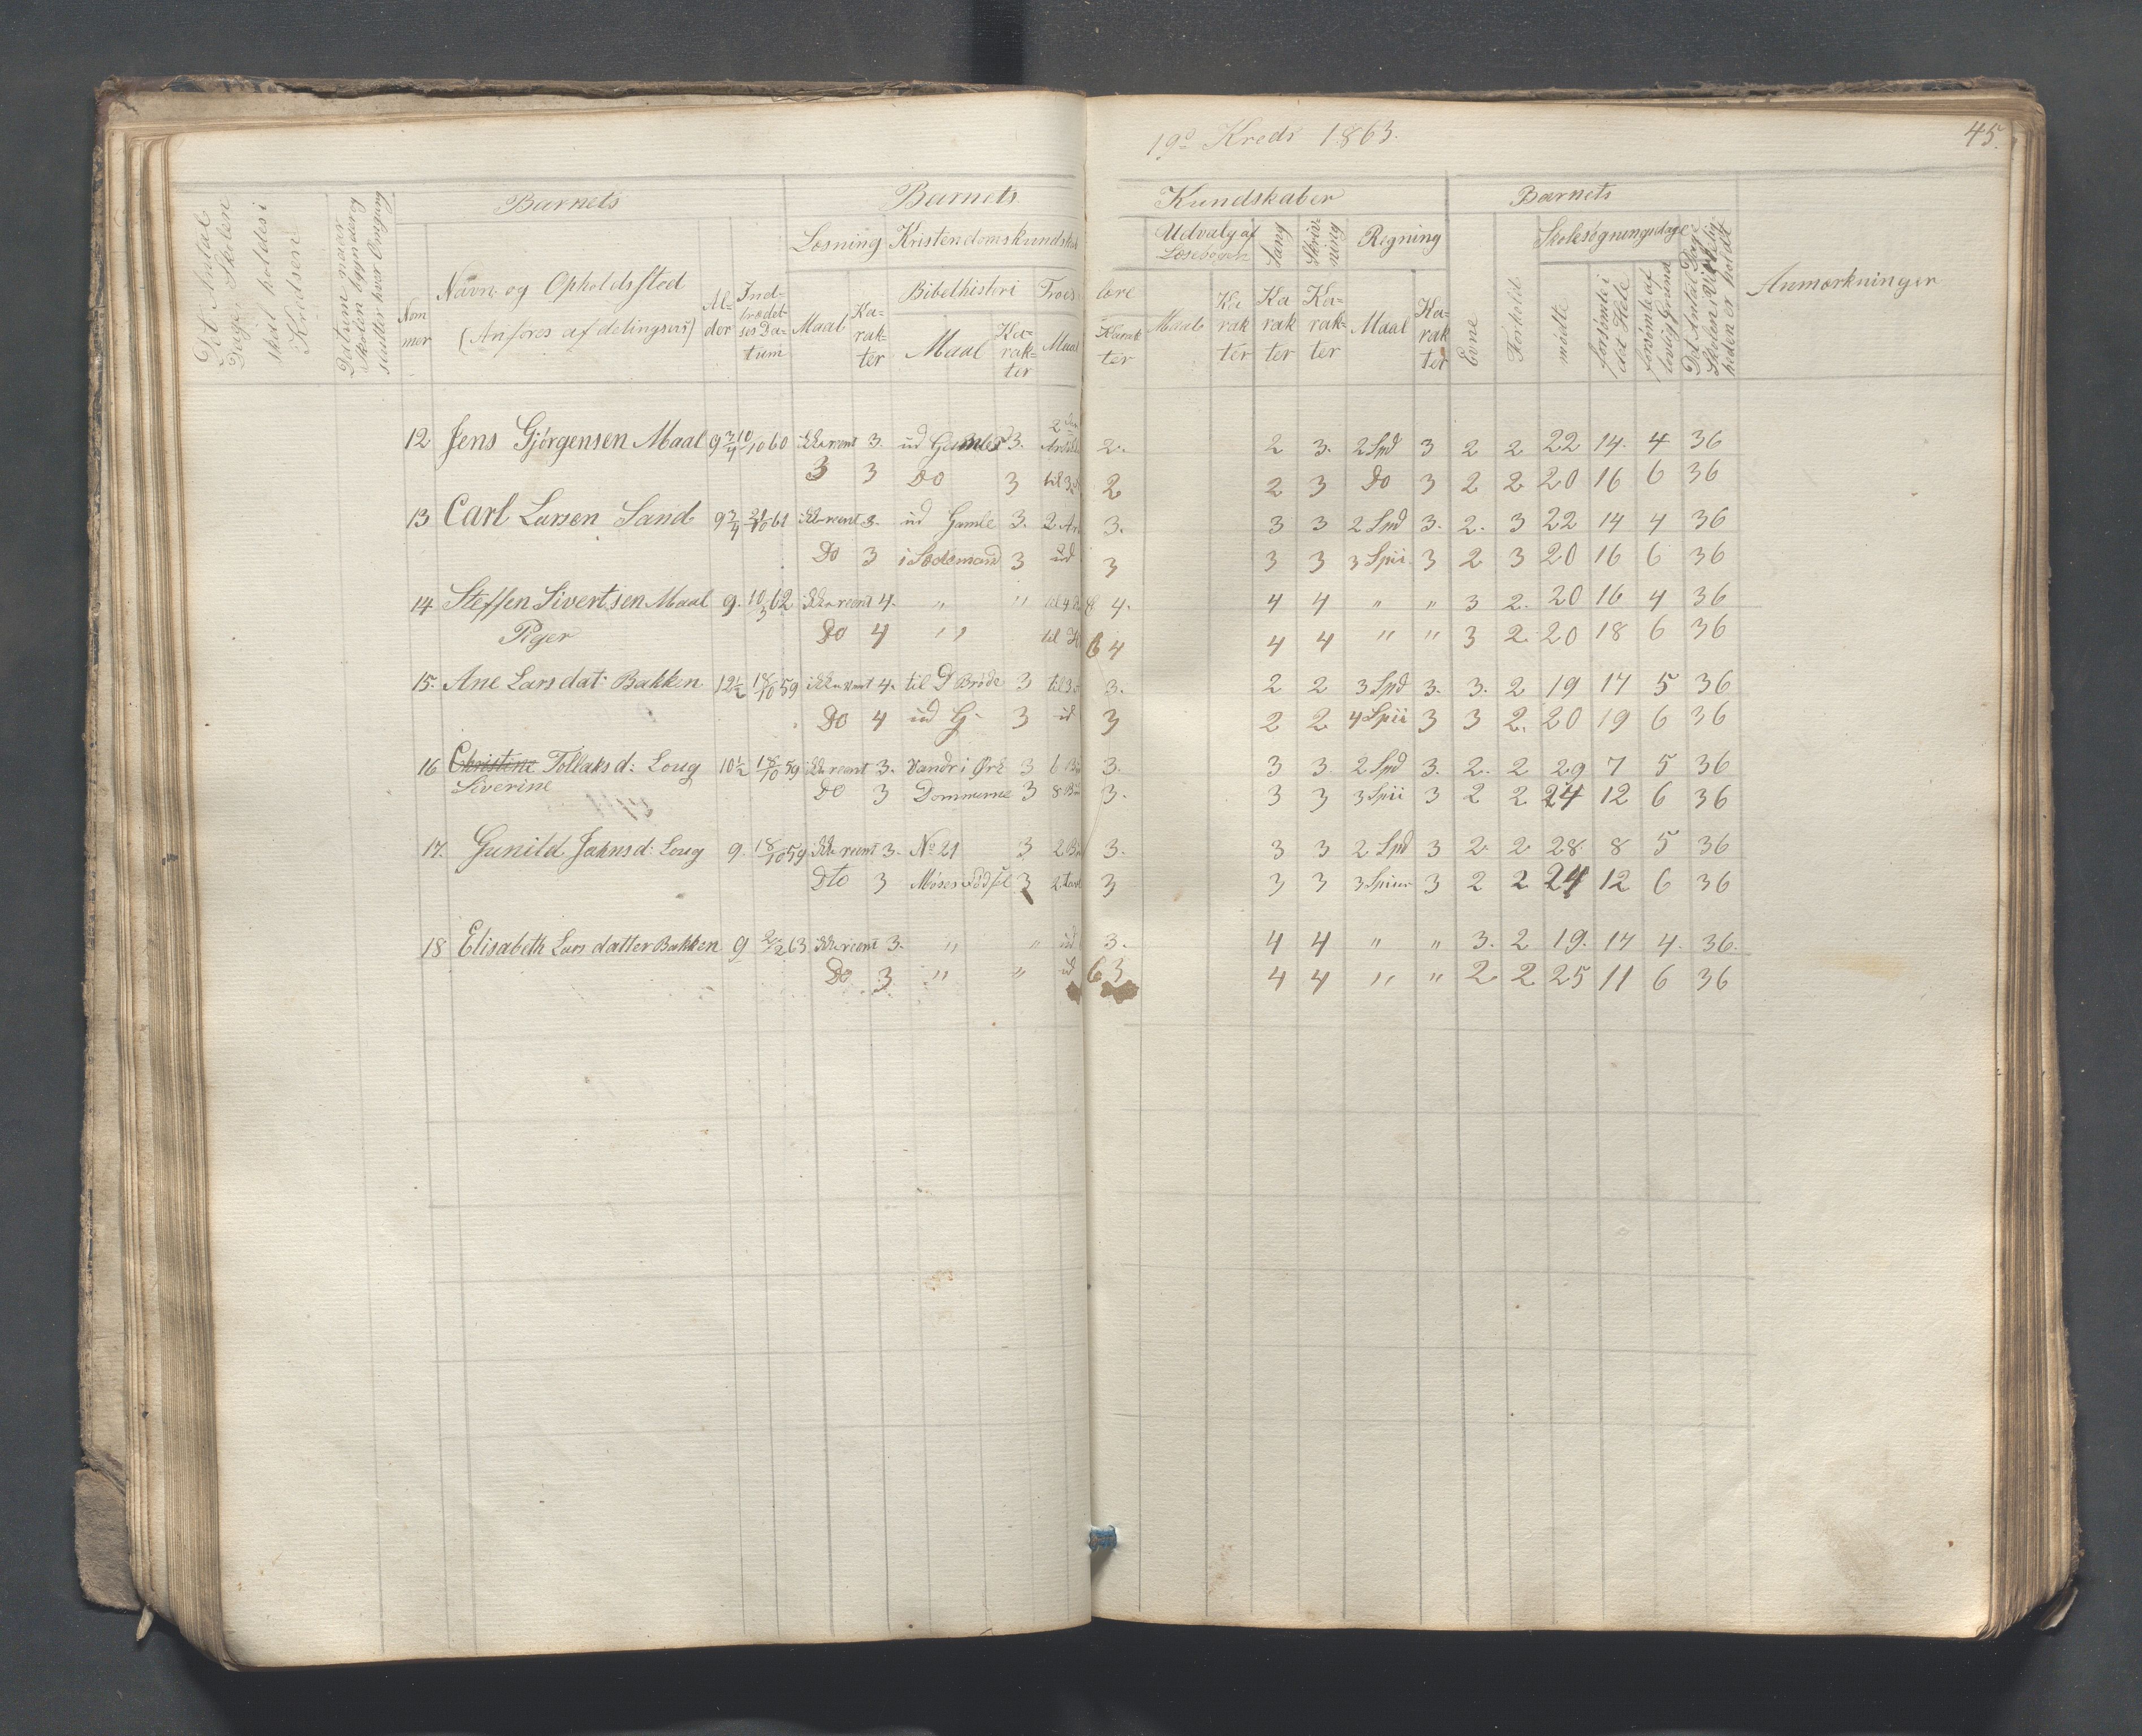 19de Kreds 1863.
45.
Det Antal Dage Skolen skal holdes i Kredsen
Datum naar Skolen begynder og slutter hver Omgang
Nom mer
Barnets
Navn og Opholdssted
(Anføres afdelingsvis)
Al- der
Ind- trædel- ses Da- tum
Barnets
Læsning Kristendomskundskab
Maal Ka- rak- ter
Bibelhistori Troes
Maal Ka- rak- ter Maal
Kundskaber
lære Karak ter
Udvalg af Læsebogen
Maal Ka rak ter
Sang Ka rak ter
Skriv- ning Ka- rak- ter
Regning
Maal Ka- rak ter
Barnets
Evne Forhold
Skolesøgningsdage
mødte forsømte i det Hele forsømte af lovlig Grund
Det Antal Dage Skolen i Virkelig- heden er holdt
Anmærkninger
12 Jens Gjørgensen Maal 9 3/4 10/10 60 3. ud Gamle 3. 2 2. 2 3. 2 Spd 3 2 2 22 14. 4 36
3 3 Do 3 til 3 2 2 3 Do 3 2 2 20 16 6 36
13 Carl Larsen Sand 9 3/4 21/10 61 3. ud Gamle 3. 2 3. 3 3 2 Spd 3. 2. 3 22 14 4 36
Do 3 3 ud 3 3 3 3 Spii 3 2 3 20 16 6 36
14 Steffen Sivertsen Maal 9. 10/3 62 4. " " 4. 4 4 " " 3 2. 20 16 4 36
Piger Do 4 " til 4 4 4 " " 3 2. 20 18 6 36
15. Ane Larsdat: Bakken 12 1/2 18/10 59 4. til 3 til 3 3. 2 2 3 Spd 3. 3. 2 19 17 5 36
Do 4 ud G 3 ud 3 2 2 4 Spii 3 3 2. 20 19 6 36
16 Christine Tollaksd: Loug 10 1/2 18/10 59 3. Vandr i Ørk 3 6 3. 3 3. 2 Spd 3. 2. 2 29 7 5 36
Siverine Do 3 Dommerne 3 8 3. 3 3 3 Spii 3 2 2 24 12 6 36
17. Gunild Jahnsd: Loug 9. 18/10 59 3. No 21 3 2 3. 3 3 2 Spd 3 2. 2 28. 8 5 36
Dto 3 Moses Fødsel 3 2 3 3 3 3 2 2 24 12 6 36
18 Elisabeth Lars datter Bakken 9 2/2 63 3. " " ud 3. 4 4 " " 3. 2 19. 17 4. 36.
Do 3 " " ud 6 3 4 4 " " 2 2 25 11 6 36